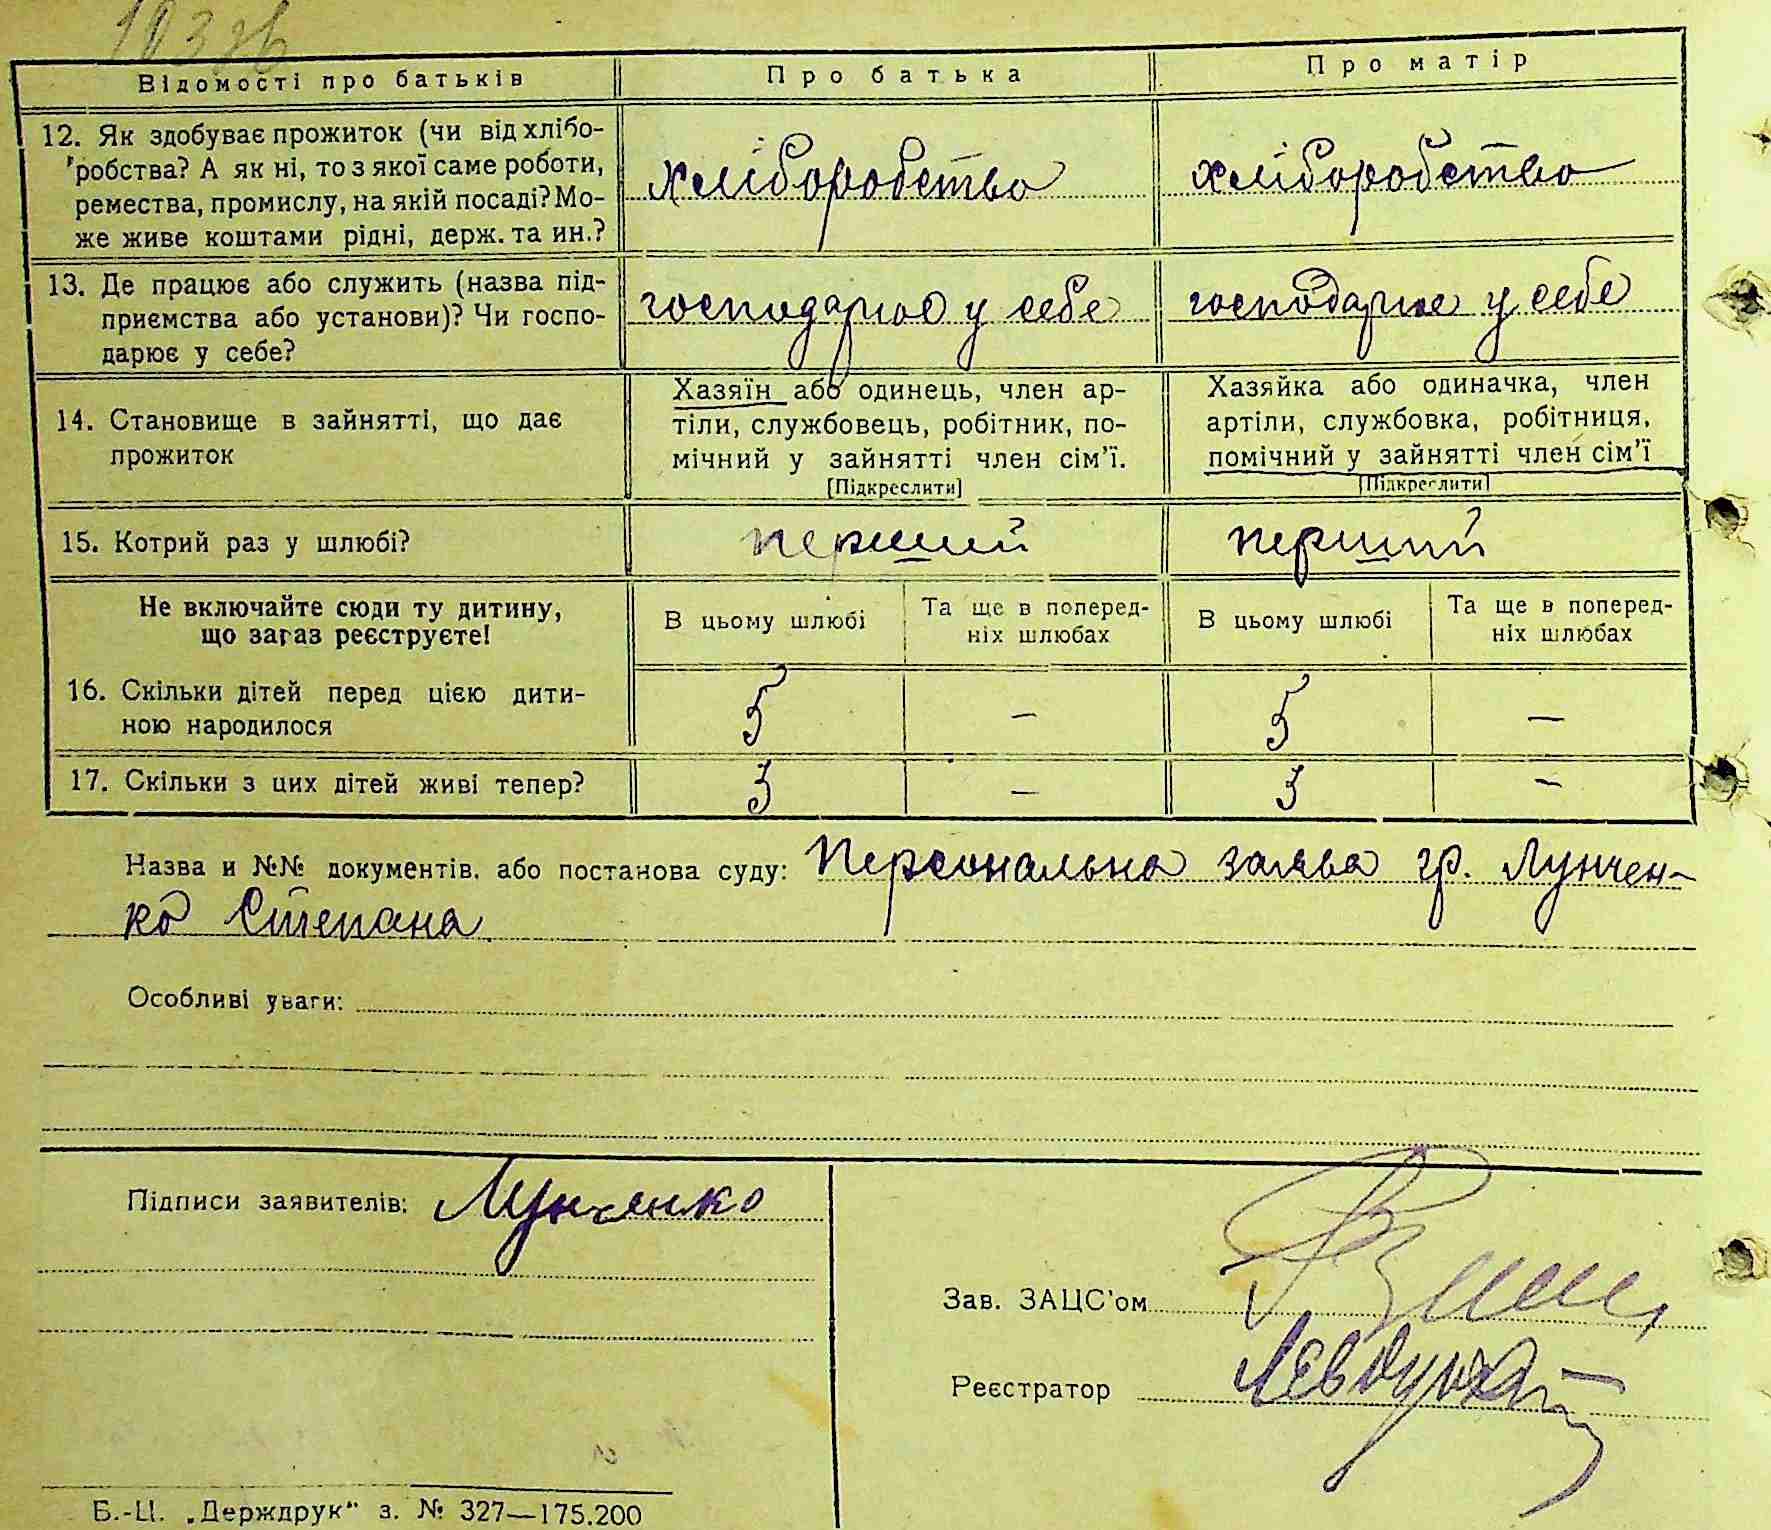 Відомості про батьків Про батька Про матір
12. Як здобуває прожиток (чи від хлібо-
робства? А як ні, то з якої саме роботи,
ремества, промислу, на якій посаді? Мо-
же живе коштами рідні, держ. та ин.?
хліборобство хліборобство
13. Де працює або служить (назва під-
приємства або установи)? Чи госпо-
дарює у себе?
господарює у себе господарює у себе
14. Становище в зайнятті, що дає
прожиток
Хазяїн або одинець, член ар-
тіли, службовець, робітник, по-
мічний у зайнятті член сім'ї.
[Підкреслити]
Хазяйка або одиначка, член
артіли, службовка, робітниця,
помічний у зайнятті член сім'ї
[Підкреслити]
15. Котрий раз у шлюбі? перший перший
Не включайте сюди ту дитину,
що зараз реєструєте!
В цьому шлюбі
Та ще в поперед-
ніх шлюбах
В цьому шлюбі
Та ще в поперед-
ніх шлюбах
16. Скільки дітей перед цією дити-
ною народилося
5 — 5 —
17. Скільки з цих дітей живі тепер? 3 — 3 —
Назва и №№ документів, або постанова суду: Персональна заява гр. Лунчен-
ко Степана
Особливі уваги:
Підписи заявителів: Лунченко
Зав. ЗАЦС'ом
Реєстратор
Б.-Ц. „Держдрук" з. № 327—175.200